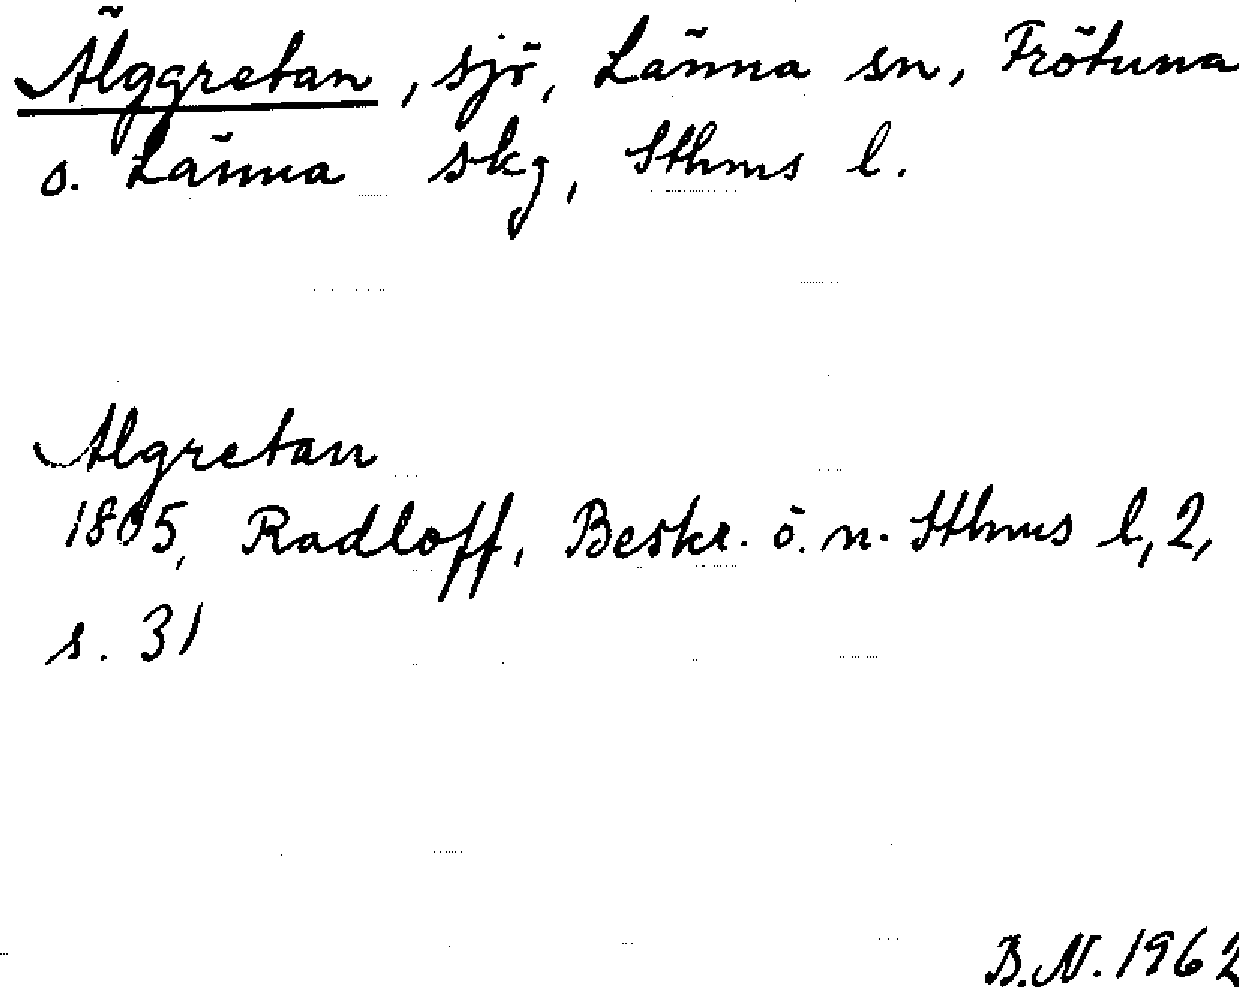 Älggretan, sjö, Länna sn, Frötuna
o. Länna skg, Sthms l.
Algretan
1805, Radloff, Beskr. ö. n. Sthms l, 2,
s. 31
B.N. 1962